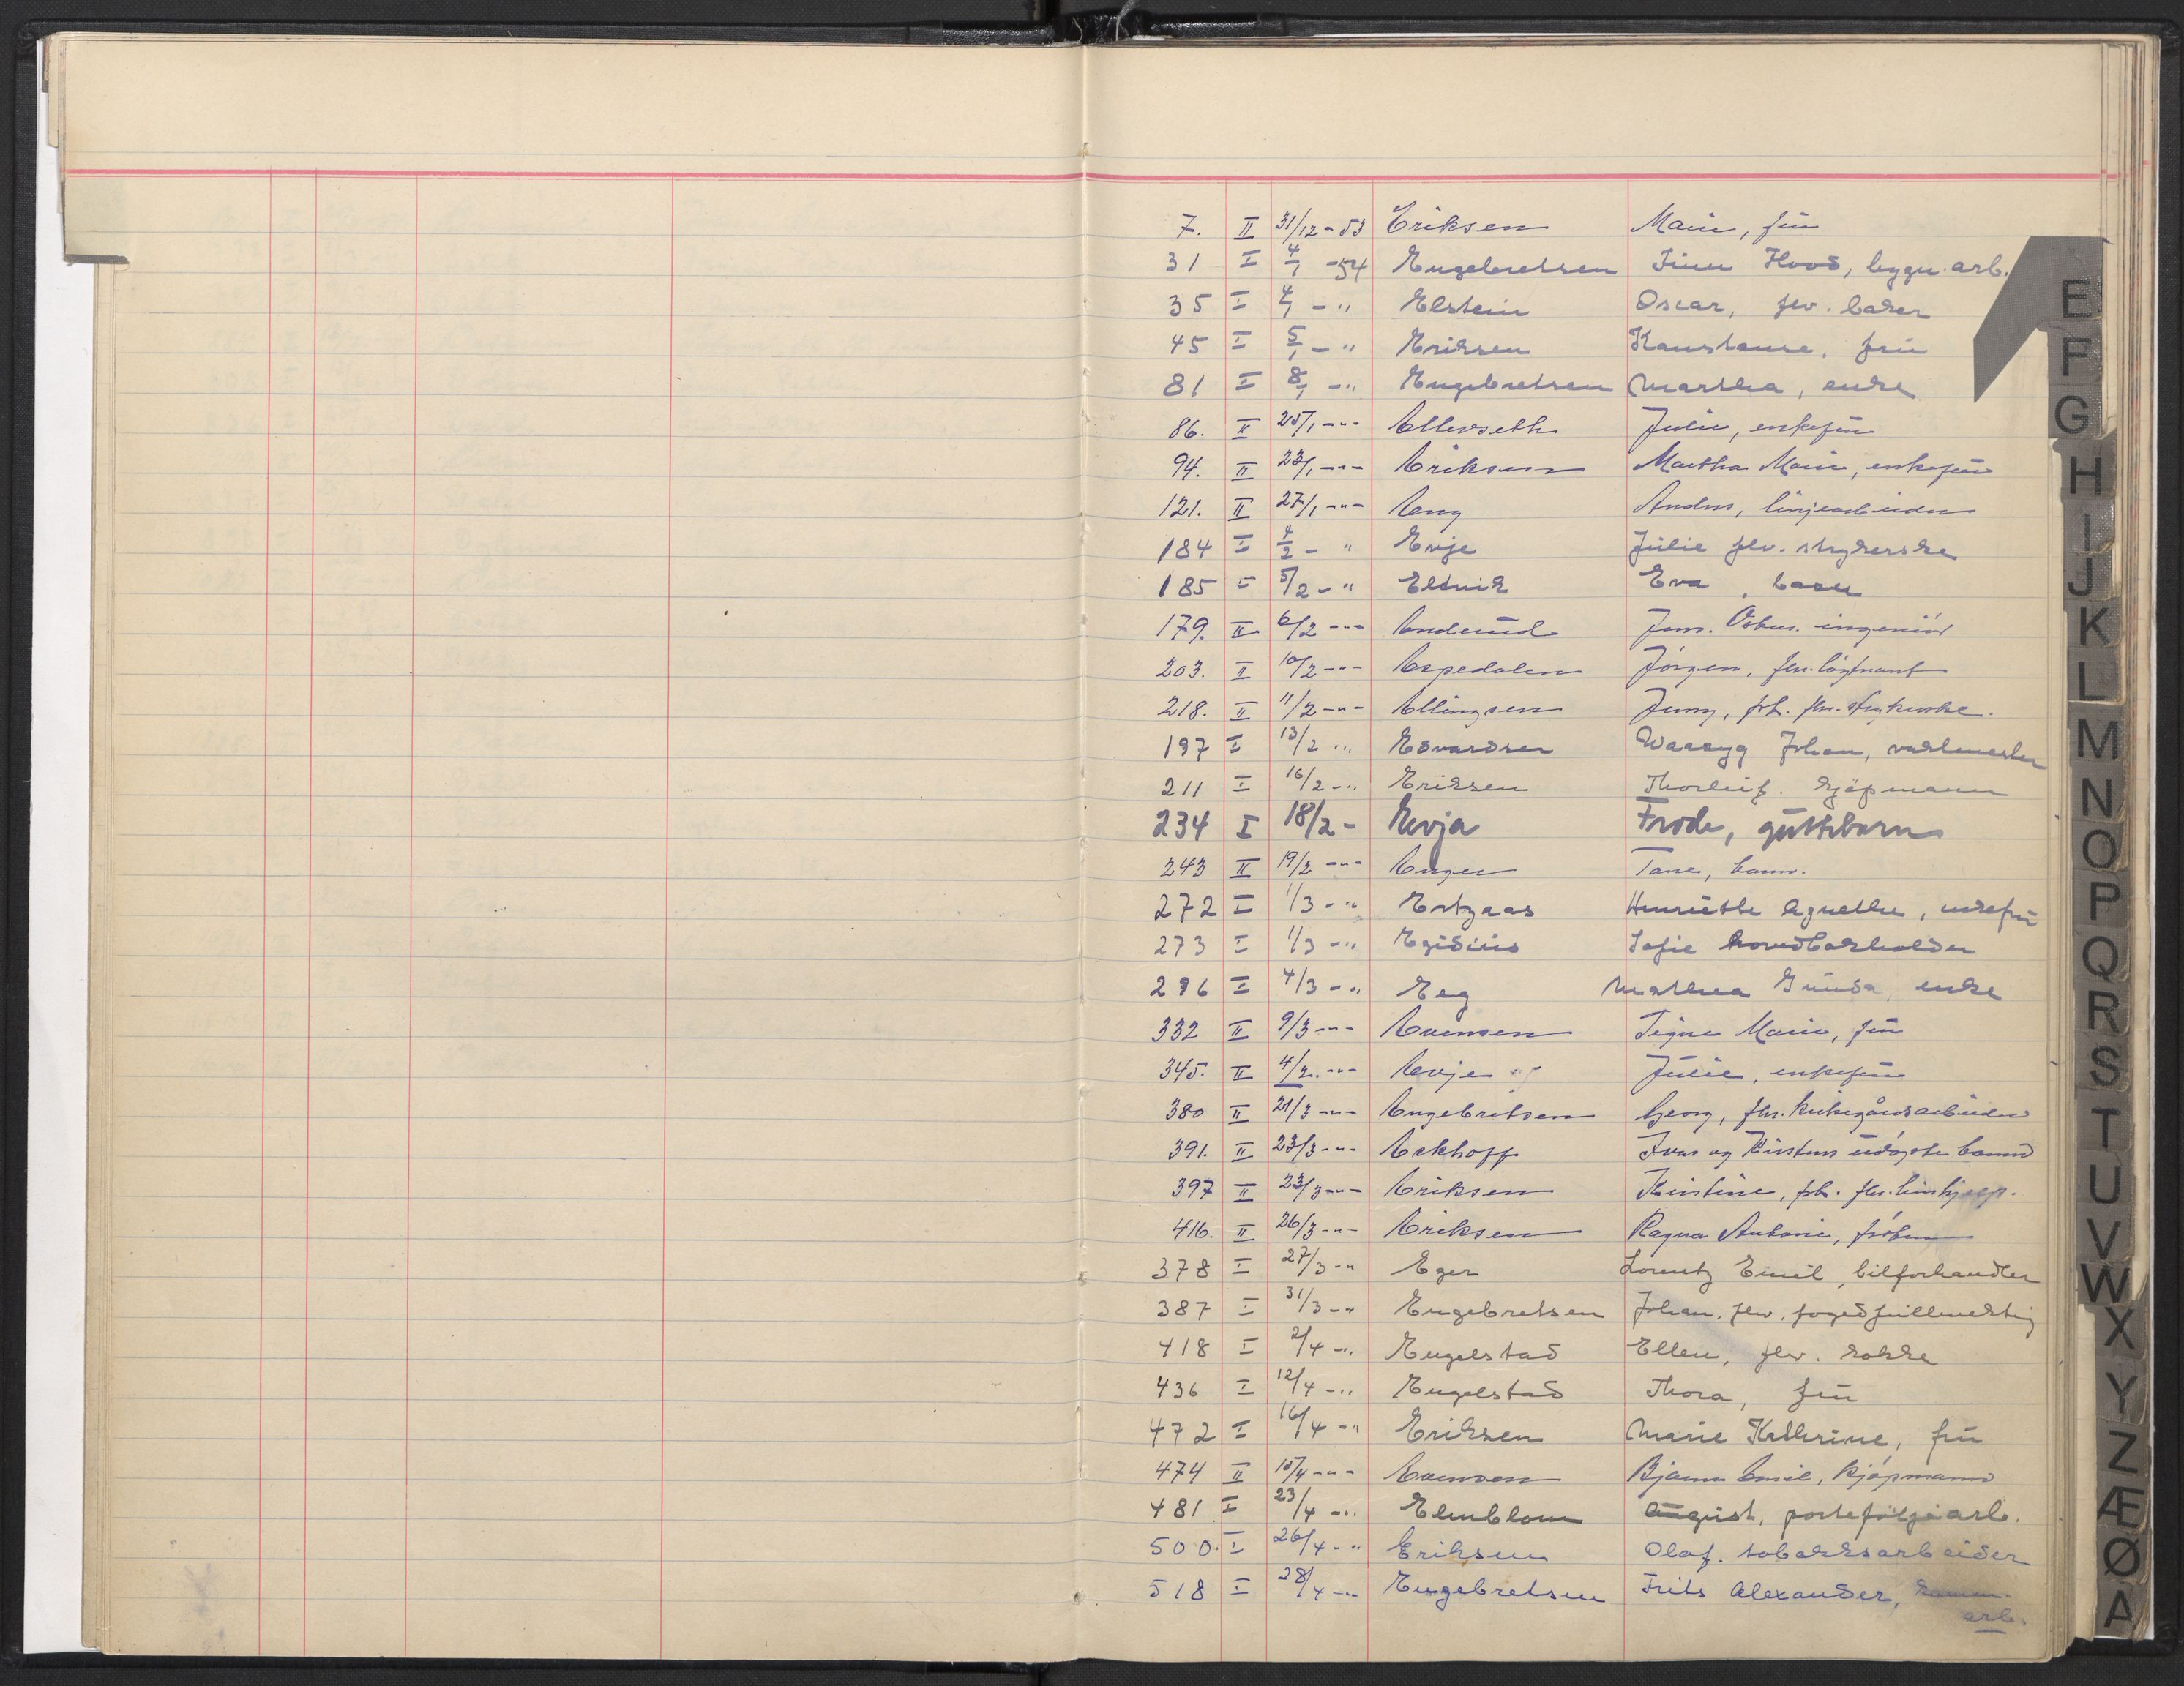 7. II 31/12-53 Eriksen Marie, frü
31 I 4/1 -54 Engebretsen Finn Hood, bygn. arb.
35 I 4/1 - " Elstein Oscar, fhv. baker
45 I 5/1 - " Eriksen Konstanse, frü
81 I 8/1 - " Engebretsen Martha, enke
86. II 25/1 - " - Ellevseth Julie, enkefrü
94. II 23/1 - " - Eriksen Martha Marie, enkefrü
121. II 27/1 - " - Eng Anders, linjearbeider
184 I 4/2 - " Evje Jülie fhv. strykerske
185 I 5/2 - " Eltnik Eva, barn
179. II 6/2 - " - Enderüd Jens. Oskar. ingeniör
203. II 10/2 - " - Espedalen Jörgen, fhv. löytnant
218. II 11/2 - " - Ellingsen Jenny, frk. fhv. strykerske.
197 I 13/2 " Edvardsen Johan, vaktmester
211 I 16/2 - " Eriksen Thorleif. kjöpmann
234 I 18/2 - Evja Frode, güttebarn
243 II 19/2 - " - Enger Tone, barn.
272 I 1/3 - " Henriette Agnethe, enkefrü
273 I 1/3 - " Egidiüs Sofie
296 I 4/3 - " Eeg Mathea enke
332 II 9/3 - " - Evensen Signe Marie, frü
345. II 4/2. - " - Evje Jülie, enkefrü
380 II 21/3 - " - Engebretsen Georg, fhv. kirkegårdsarbeider
391. II 23/3 - " - Eckhoff Ivar og Kirstens üdöpte barn
397 II 23/3 - " - Eriksen Kristine, frk. fhv. hüshjelp.
416. II 26/3 - " - Eriksen Ragna Antonie, fröken
378 I 27/3 - " Eger Lorentz Emil, bilforhandler
387 I 31/3 - " Engebretsen Johan. fhv. fogedfüllmektig
418 I 2/4 - " Engelstad Ellen, fhv. kokke
436 I 12/4 - " Engelstad Thora, frü
472 I 16/4 - " Eriksen Marie Kathrine, frü
474 II 15/4 - " - Evensen Bjarne Emil, kjöpmann
481. I 23/4 - " Elmblom Aügüst, porteföljearb.
500. I 26/4 - " Eriksen Olaf. tobakksarbeider
518 I 28/4 - " Engebretsen Frits Alexander, komm.
arb.
E
F
G
H
I
J
K
L
M
N
O
P
Q
R
S
T
U
V
W
X
Y
Z
Æ
Ø
A